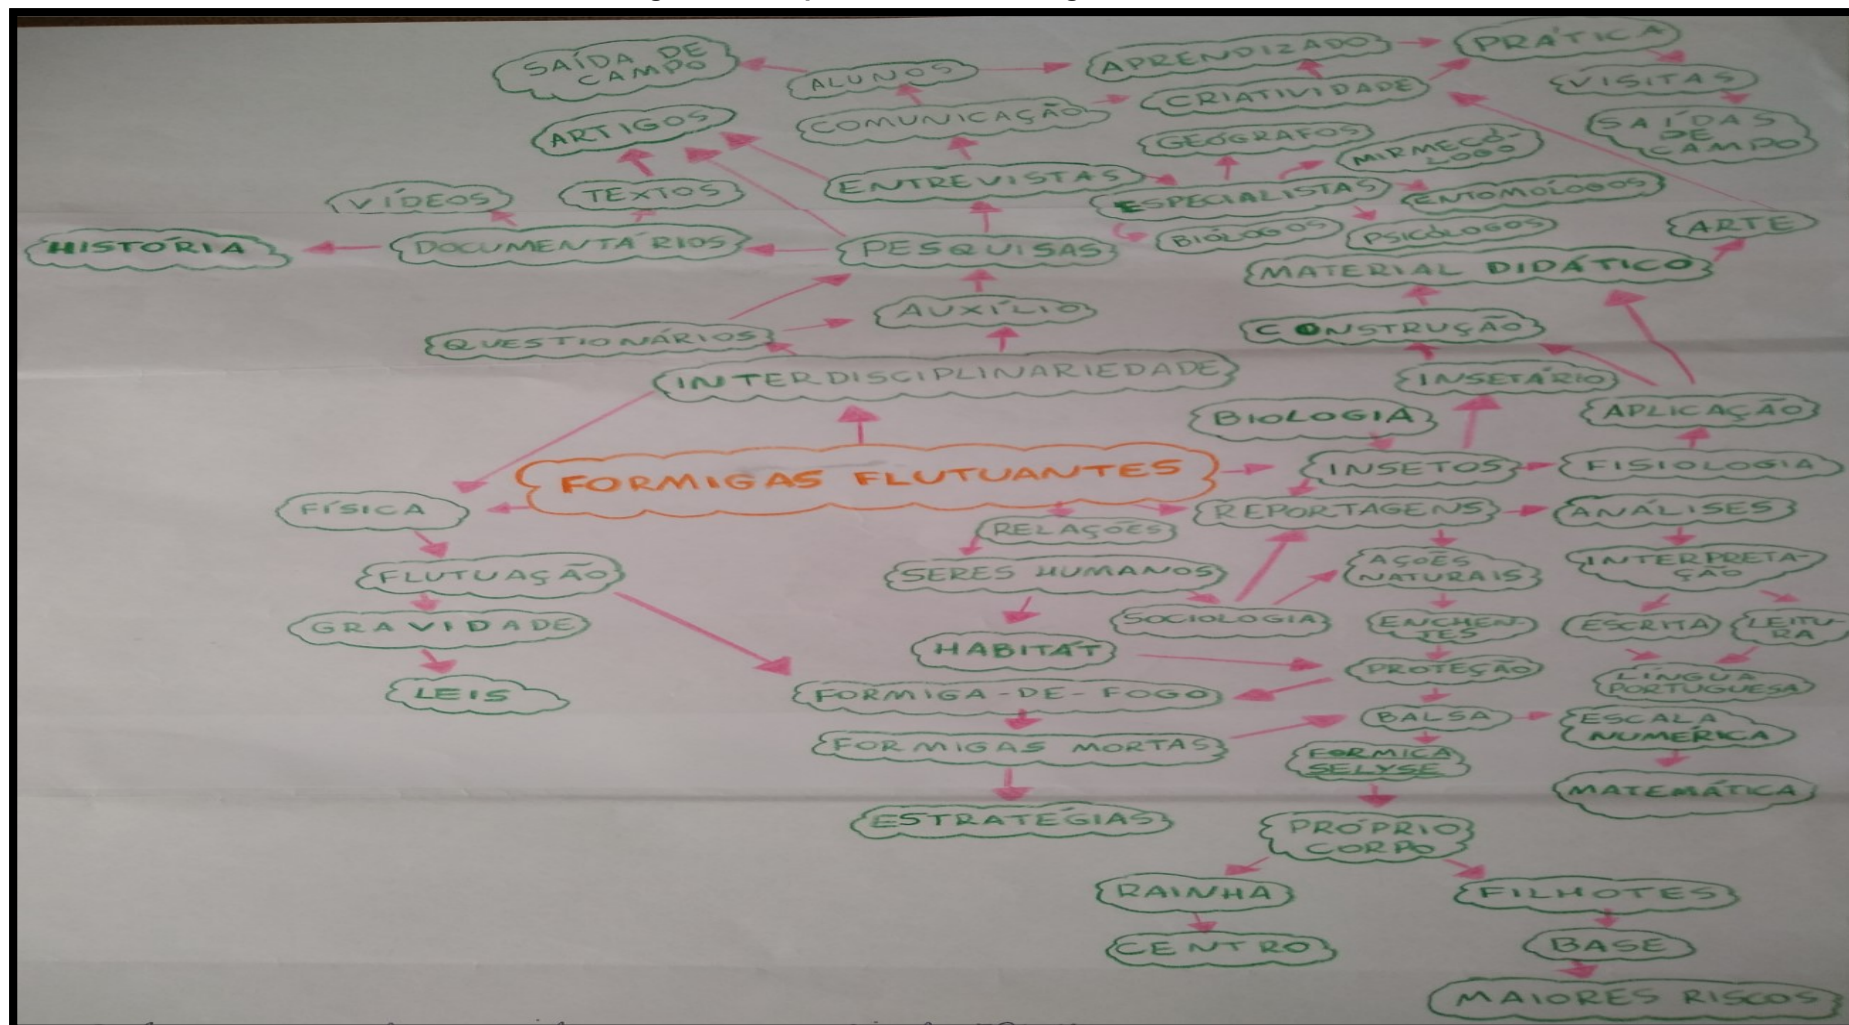 SAÍDA DE
CAMPO
ALUNOS
APRENDIZADO
PRÁTICA
VISITAS
SAÍDAS
DE
CAMPO
ARTIGOS
COMUNICAÇÃO
CRIATIVIDADE
GEÓGRAFOS
MIRMECÓ-
LOGO
VÍDEOS
TEXTOS
ENTREVISTAS
ESPECIALISTAS
ENTOMÓLOGOS
HISTÓRIA
DOCUMENTÁRIOS
PESQUISAS
BIÓLOGOS
PSICÓLOGOS
ARTE
MATERIAL DIDÁTICO
AUXÍLIO
QUESTIONÁRIOS
CONSTRUÇÃO
INTERDISCIPLINARIEDADE
INSETÁRIO
BIOLOGIA
APLICAÇÃO
FORMIGAS FLUTUANTES
INSETOS
FISIOLOGIA
FÍSICA
RELAÇÕES
REPORTAGENS
ANÁLISES
FLUTUAÇÃO
SERES HUMANOS
AÇÕES
NATURAIS
INTERPRETA-
ÇÃO
GRAVIDADE
SOCIOLOGIA
ENCHEN-
TES
ESCRITA
LEITU-
RA
HABITAT
PROTEÇÃO
LÍNGUA
PORTUGUESA
LEIS
FORMIGA-DE-FOGO
BALSA
ESCALA
NUMÉRICA
FORMIGAS MORTAS
FORMICA
SELYSE
MATEMÁTICA
ESTRATÉGIAS
PRÓPRIO
CORPO
RAINHA
FILHOTES
CENTRO
BASE
MAIORES RISCOS